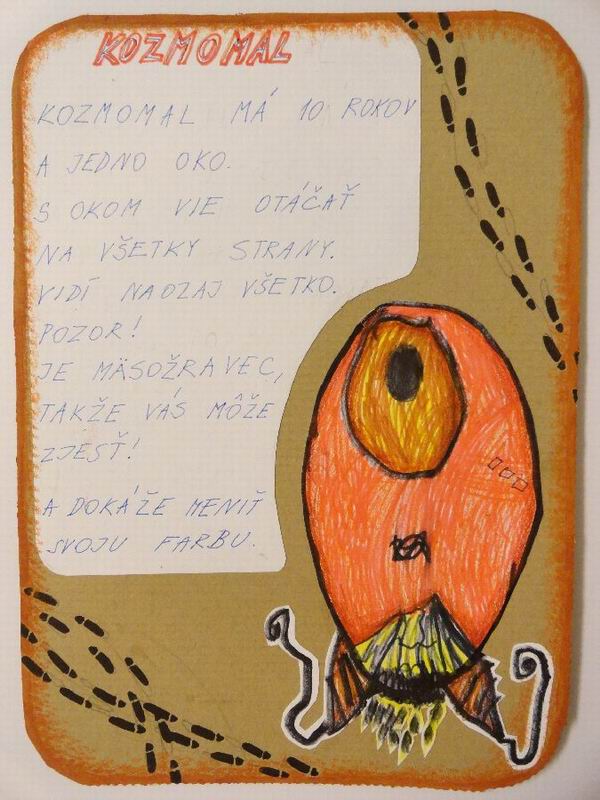 KOZMOMAL
KOZMOMAL MÁ 10 ROKOV
A JEDNO OKO.
S OKOM VIE OTÁČAŤ
NA VŠETKY STRANY.
VIDÍ NAOZAJ VŠETKO.
POZOR!
JE MÄSOŽRAVEC,
TAKŽE VÁS MÔŽE
ZJESŤ!
A DOKÁŽE MENIŤ
SVOJU FARBU.